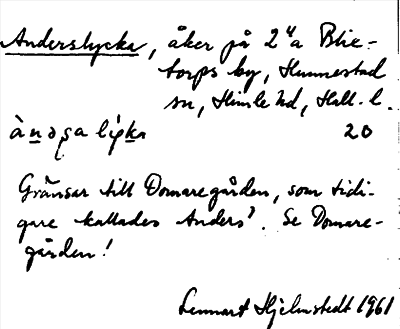 Anderslycka, åker på 2 ª Blixtorps by, Hunnestad
sn, Himle hd, Hall. l.
20
Gränsar till Domaregården, som tidi-
gare kallades Anders'. Se Domare-
gården!
Lennart Hjelmstedt 1961